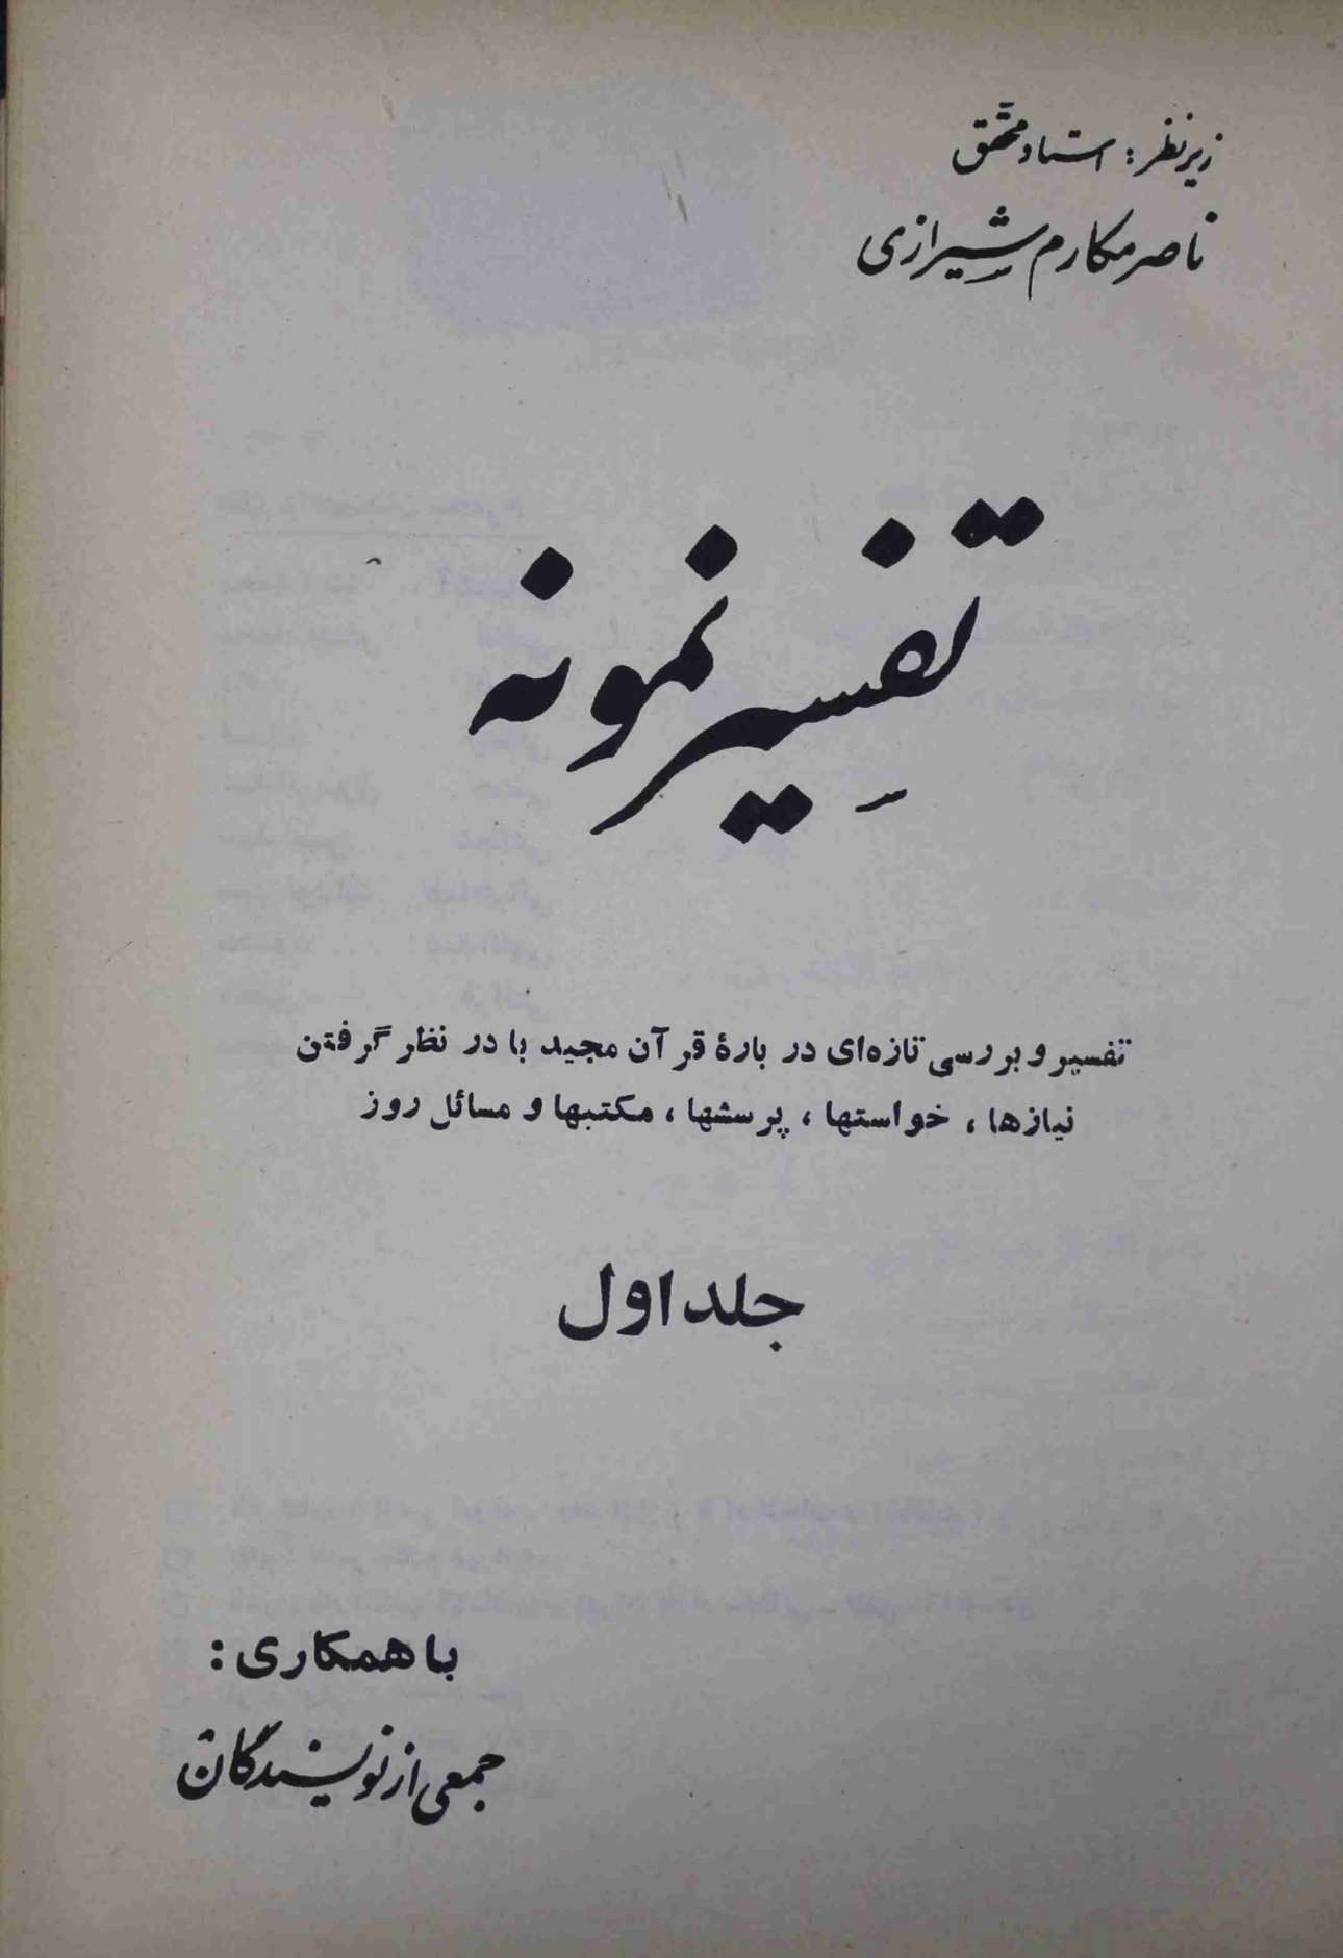 زیر نظر : استاد محقق
ناصر مکارم شیرازی
تفسیر نمونه
تفسیر و بررسی تازه‌ای در بارهٔ قرآن مجید با در نظر گرفتن
نیازها ، خواستها ، پرسشها ، مکتبها و مسائل روز
جلد اول
با همکاری :
جمعی از نویسندگان